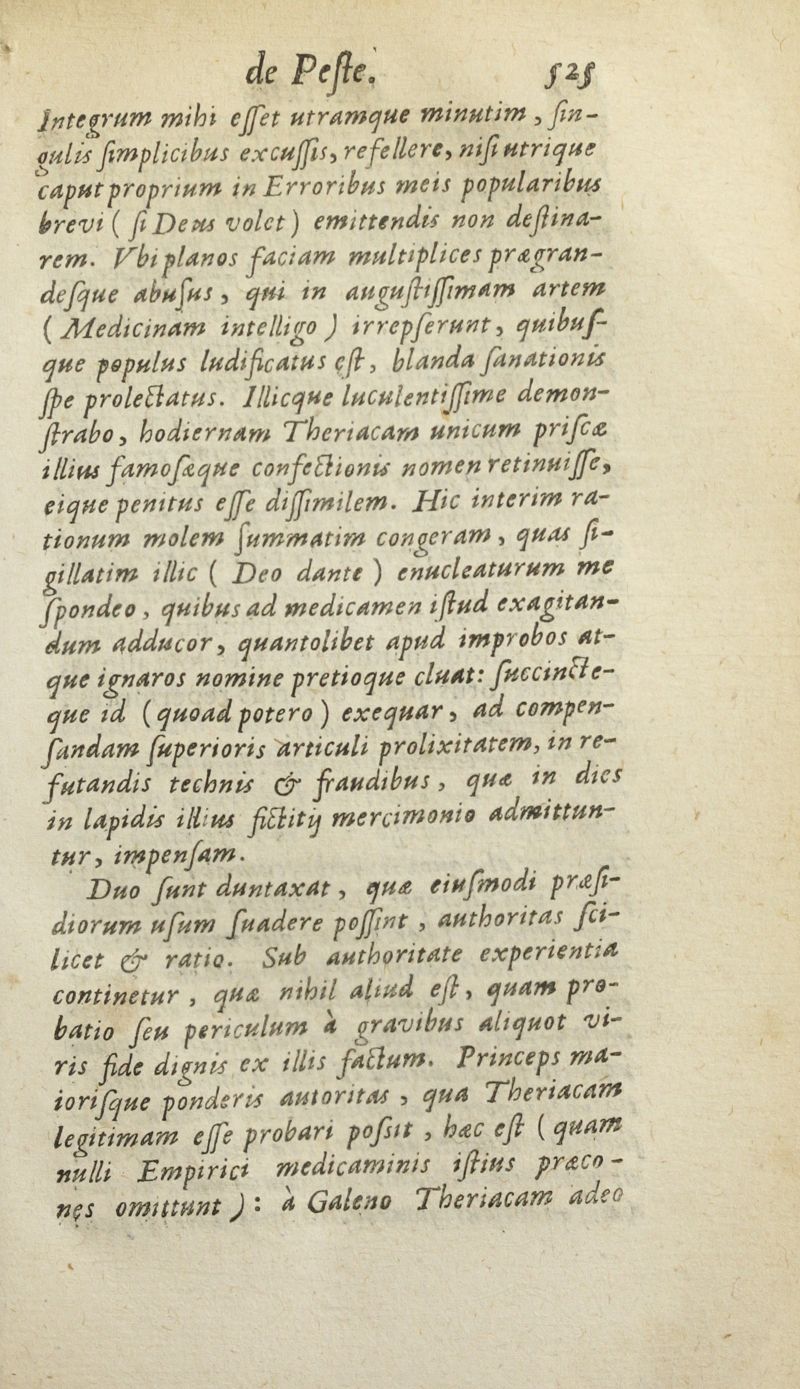 de Peſte. 525
Integrum mihi eſſet utramque minutim, ſin-
gulis ſimplicibus excuſſis, refellere, niſi utrique
caput proprium in Erroribus meis popularibus
brevi ( ſi Deus volet) emittendis non deſtina-
rem. Vbi planos faciam multiplices prægran-
deſque abuſus, qui in auguſtiſſimam artem
( Medicinam intelligo ) irrepſerunt, quibuſ-
que populus ludificatus eſt, blanda ſanationis
ſpe prolectatus. Illicque luculentiſſime demon-
ſtrabo, hodiernam Theriacam unicum priſcæ
illius famoſæque confectionis nomen retinuiſſe,
eique penitus eſſe diſſimilem. Hic interim ra-
tionum molem ſummatim congeram, quas ſi-
gillatim illic ( Deo dante ) enucleaturum me
ſpondeo, quibus ad medicamen iſtud exagitan-
dum adducor, quantolibet apud improbos at-
que ignaros nomine pretioque cluat: ſuccincte-
que id (quoad potero) exequar, ad compen-
ſandam ſuperioris articuli prolixitatem, in re-
futandis technis & fraudibus, quæ in dies
in lapidis illius fictitij mercimonio admittun-
tur, impenſam.
Duo ſunt duntaxat, quæ eiuſmodi præſi-
diorum uſum ſuadere poſſint, authoritas ſci-
licet & ratio. Sub authoritate experientia
continetur, quæ nihil aliud eſt, quam pro-
batio ſeu periculum à gravibus aliquot vi-
ris fide dignis ex illis factum. Princeps ma-
ioriſque ponderis autoritas, qua Theriacam
legitimam eſſe probari poſsit, hæc eſt (quam
nulli Empirici medicaminis iſtius præco-
nes omittunt): à Galeno Theriacam adeo